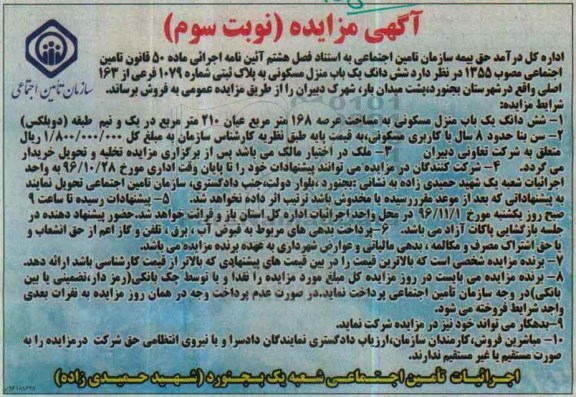 آگهی مزایده (نوبت سوم)
سازمان تأمین اجتماعی
اداره کل درآمد حق بیمه سازمان تامین اجتماعی به استناد فصل هشتم آئین نامه اجرائی ماده ۵۰ قانون تامین
اجتماعی مصوب ۱۳۵۵ در نظر دارد شش دانگ یک باب منزل مسکونی به پلاک ثبتی شماره ۱۰۷۹ فرعی از ۱۶۳
اصلی واقع در شهرستان بجنورد،پشت میدان بار، شهرک دبیران را از طریق مزایده عمومی به فروش برساند.
شرایط مزایده:
۱- شش دانگ یک باب منزل مسکونی به مساحت عرصه ۱۶۸ متر مربع عیان ۲۱۰ متر مربع در یک و نیم طبقه (دوبلکس)
۲- سن بنا حدود ۸ سال با کاربری مسکونی،به قیمت پایه طبق نظریه کارشناس سازمان به مبلغ کل ۱/۸۰۰/۰۰۰/۰۰۰ ریال
متعلق به شرکت تعاونی دبیران ۳- ملک در اختیار مالک می باشد پس از برگزاری مزایده تخلیه و تحویل خریدار
می گردد. ۴- شرکت کنندگان در مزایده می توانند پیشنهادات خود را تا پایان وقت اداری مورخ ۹۶/۱۰/۲۸ به واحد
اجرائیات شعبه یک شهید حمیدی زاده به نشانی :بجنورد ،بلوار دولت،جنب دادگستری، سازمان تامین اجتماعی تحویل نمایند
به پیشنهاداتی که بعد از موعد مقرررسیده یا مخدوش باشد ترتیب اثر داده نخواهد شد. ۵- پیشنهادات رسیده تا ساعت ۹
صبح روز یکشنبه مورخ ۹۶/۱۱/۱ در محل واحد اجرائیات اداره کل استان باز و قرائت خواهد شد.حضور پیشنهاد دهنده در
جلسه بازگشایی پاکات آزاد می باشد. ۶-پرداخت بدهی های مربوط به قبوض آب ، برق ، تلفن و گاز اعم از حق انشعاب و
یا حق اشتراک مصرف و مکالمه ، بدهی مالیاتی و عوارض شهرداری به عهده برنده مزایده می باشد.
۷- برنده مزایده شخصی است که بالاترین قیمت را در بین قیمت های پیشنهادی که بالاتر از قیمت کارشناسی باشد ارائه دهد.
۸- برنده مزایده می بایست در روز مزایده کل مبلغ مورد مزایده را نقدا و یا توسط چک بانکی(رمز دار،تضمینی یا بین
بانکی)در وجه سازمان تأمین اجتماعی پرداخت نماید.در صورت عدم پرداخت وجه در همان روز مزایده به نفرات بعدی
واجد شرایط فروخته می شود.
۹-بدهکار می تواند خود نیز در مزایده شرکت نماید.
۱۰- مباشرین فروش،کارمندان سازمان،ارزیاب دادگستری نمایندگان دادسرا و یا نیروی انتظامی حق شرکت در مزایده را به
صورت مستقیم یا غیر مستقیم ندارند.
اجرائیات تأمین اجتماعی شعبه یک بجنورد (شهید حمیدی زاده)